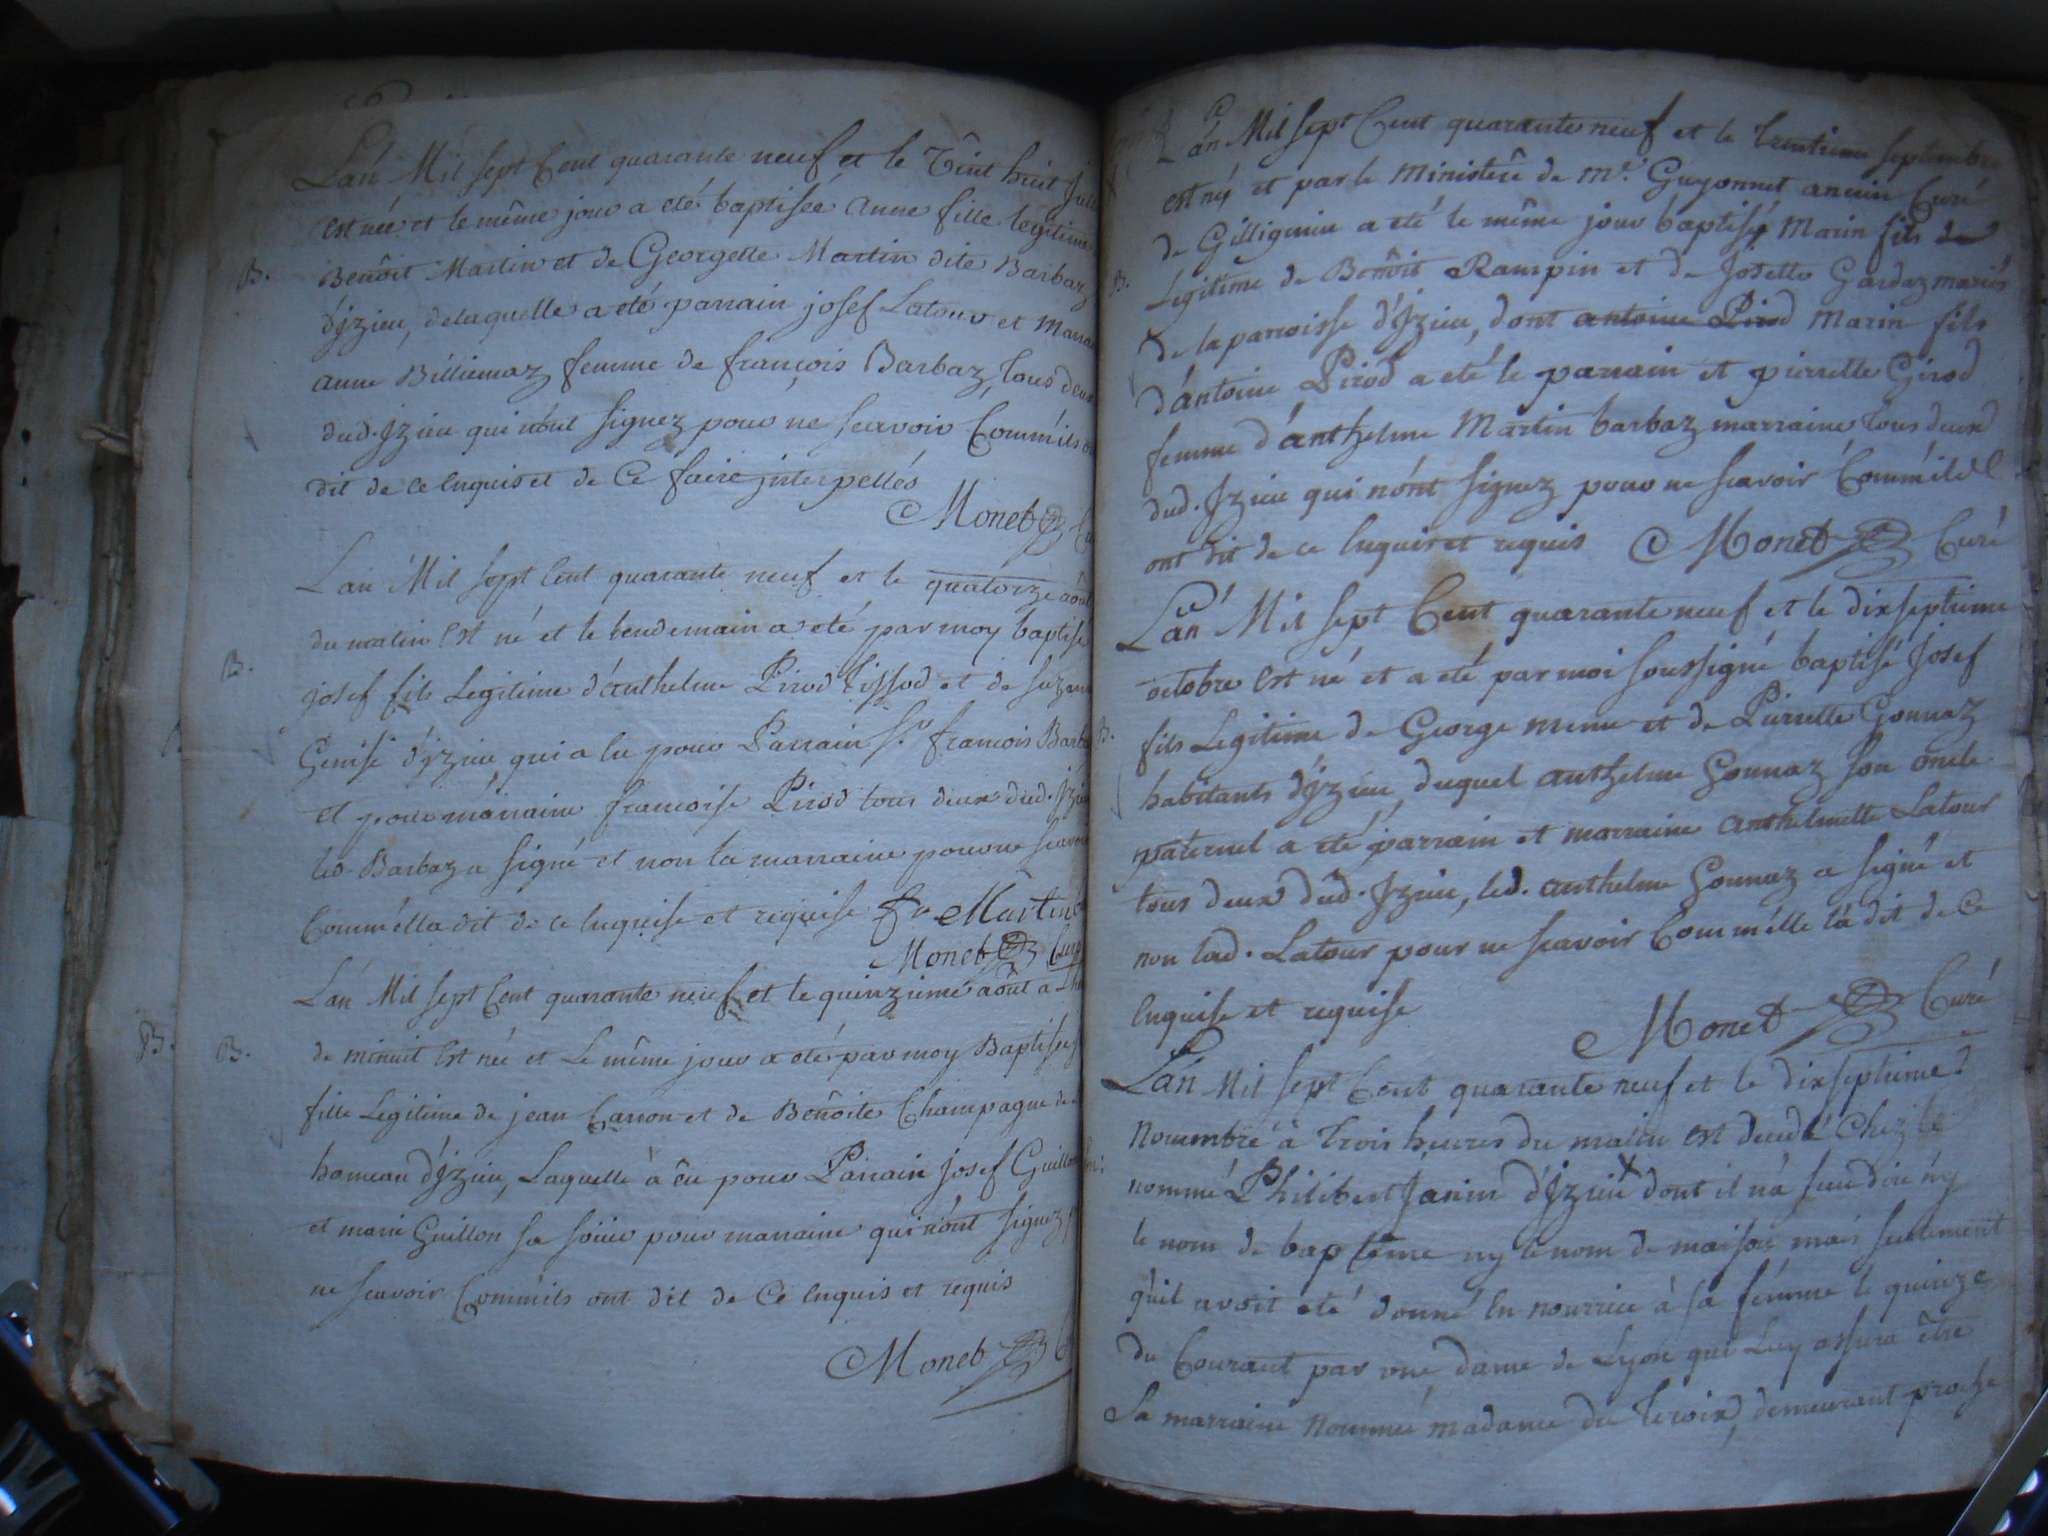 L'an Mil sept Cent quarante neuf et le Vint huit
est née et le même jour a eté baptisée anne fille legitime
B. Benôit Martin et de Georgette Martin dite Barbaz
d'Jzieu, delaquelle a eté parrain josef Latour et
anne Billiemaz femme de françois Barbaz, tous deux
dud. Jzieu qui n'ont signez pour ne scavoir Comm'ils
dit de ce Enquis et de Ce faire interpellés
Monet
L'an Mil sept Cent quarante neuf et le quatorze août
du matin Est né et le lendemain a eté par moy baptisé
B. josef fils Legitime d'anthelme Pirod Tissod et de
Genisé d'jzieu, qui a Eu pour Parrain Sr. francois
et pour marraine francoise Pirod tous deux dud. Jzieu
led. Barbaz a signé et non la marraine pour ne
Comm'ella dit de ce Enquise et requise fr Martin
Monet Curé
L'an Mil sept Cent quarante neuf et le quinzieme août a
B. B. de minuit Est née et Le même jour a eté par moy Baptisée
fille Legitime de jean Carron et de Benôite Champagne de
hameau d'Jzieu, Laquelle à Eu pour Parrain josef
et marie Guillon sa soeur pour marraine qui n'ont signez
ne scavoir Comm'ils ont dit de Ce Enquis et requis
Monet
L'an Mil sept Cent quarante neuf et le trentieme septembre
est né et par le Ministere de Mr. Guyonnet ancien Curé
de Gillignieu a eté le même jour baptisé Marin fils de
B. Legitime de Benôit Rampin et de Josette Gardaz mariés
de la parroisse d'Jzieu, dont antoine Pirod Marin fils
d'antoine Pirod a eté le parrain et pierrette Girod
femme d'anthelme Martin barbaz marraine tous deux
dud. Jzieu qui n'ont signez pour ne scavoir Comm'ils
ont dit de ce Enquis et requis Monet Curé
L'an Mil sept Cent quarante neuf et le dixseptieme
octobre Est né et a eté par moi soussigné baptisé Josef
B. fils Legitime de George meme et de Pierrette Gonnaz
habitants d'Jzieu duquel anthelme Gonnaz son oncle
paternel a eté parrain et marraine anthelmette Latour
tous deux dud. Jzieu, led. anthelme Gonnaz a signé et
non lad. Latour pour ne scavoir Comm'elle l'a dit de Ce
Enquise et requise
Monet Curé
L'an Mil sept Cent quarante neuf et le dixseptieme
Novembre à trois heures du matin est decedé Chez le
nommé Philibert Janin d'Jzieu dont il n'a sceu dire ny
le nom de baptême ny le nom de maison mais seulement
qu'il avoit eté donné En nourrice à sa femme le quinze
du Courant par une dame de Lyon qui Luy assura être
Sa marraine Nommée madame du Teroix, demeurant proche